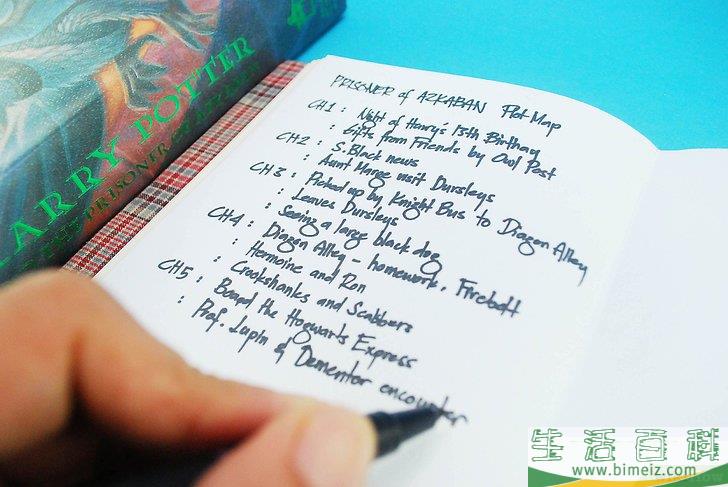 HARRY POTTER
PRISONER OF AZKABAN
PRISONER of AZKABAN Plot Map
CH1 : Night of Harry's 13th Birthay
: Gifts from Friends by Owl Post
CH2 : S. Black news
: Aunt Marge visit Dursleys
CH3 : Picked up by Knight Bus to Diagon Alley
: Leaves Dursleys
: Seeing a large black dog
CH4 : Diagon Alley - homework, Firebolt
: Hermoine and Ron
: Crookshanks and Scabbers
CH5 : Board the Hogwarts Express
: Prof. Lupin & Dementor encounter
生活百科
www.bimeiz.com